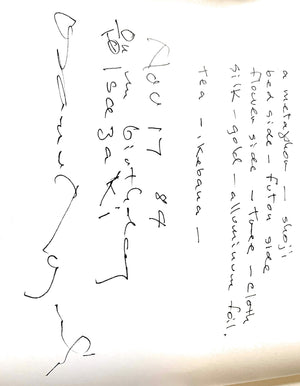 a metaphor – shoji
bed side – futon side
flower side – tree – cloth
silk – gold – alluminum foil.
tea – ikebana –
Nov 17 84
on m birthday
to Isozaki